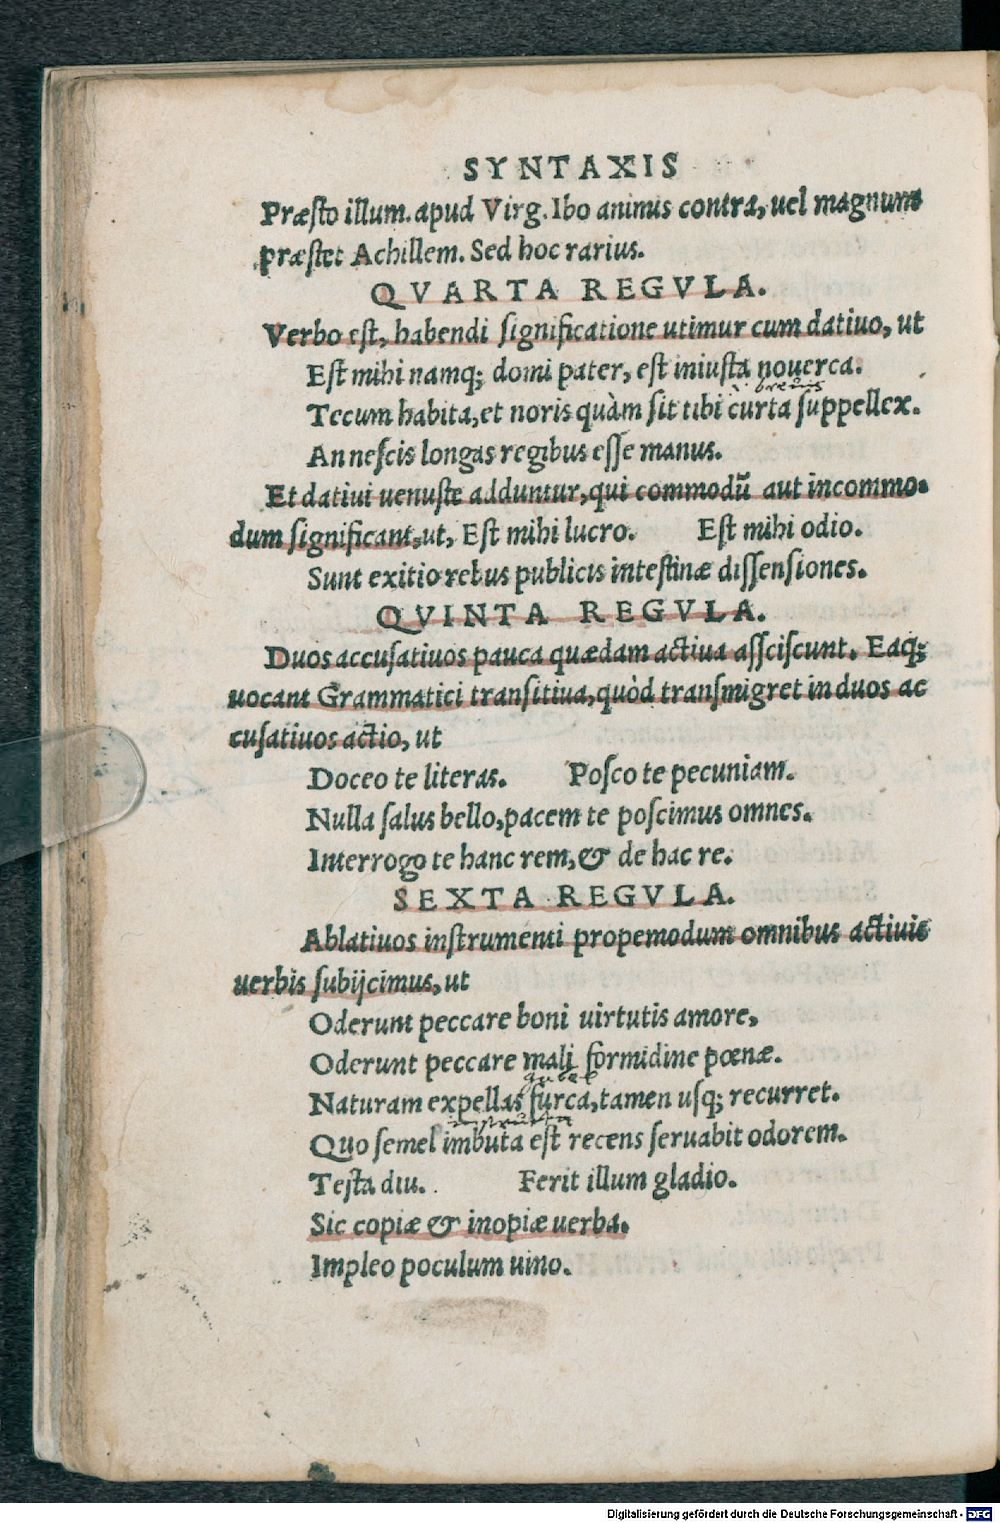 SYNTAXIS
Præsto illum. apud Virg. Ibo animis contra, uel magnum
præstet Achillem. Sed hoc rarius.
QVARTA REGVLA.
Verbo est, habendi significatione utimur cum datiuo, ut
Est mihi namq; domi pater, est iniusta nouerca.
breuis
Tecum habita, et noris quàm sit tibi curta suppellex.
An nescis longas regibus esse manus.
Et datiui uenuste adduntur, qui commodū aut incommo-
dum significant, ut, Est mihi lucro. Est mihi odio.
Sunt exitio rebus publicis intestinæ dissensiones.
QVINTA REGVLA.
Duos accusatiuos pauca quædam actiua assciscunt. Eaq;
uocant Grammatici transitiua, quòd transmigret in duos ac
cusatiuos actio, ut
Doceo te literas. Posco te pecuniam.
Nulla salus bello, pacem te poscimus omnes.
Interrogo te hanc rem, & de hac re.
SEXTA REGVLA.
Ablatiuos instrumenti propemodum omnibus actiuis
uerbis subijcimus, ut
Oderunt peccare boni uirtutis amore,
Oderunt peccare mali formidine pœnæ.
gabel
Naturam expellas furca, tamen usq; recurret.
instructa
Quo semel imbuta est recens seruabit odorem.
Testa diu. Ferit illum gladio.
Sic copiæ & inopiæ uerba.
Impleo poculum uino.
Digitalisierung gefördert durch die Deutsche Forschungsgemeinschaft - DFG